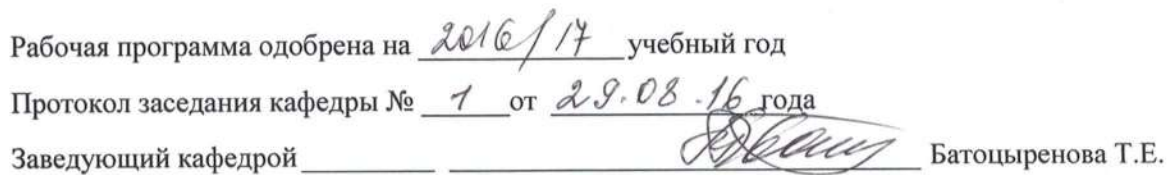 Рабочая программа одобрена на 2016/17 учебный год
Протокол заседания кафедры № 1 от 29.08.16 года
Заведующий кафедрой Батоцыренова Т.Е.